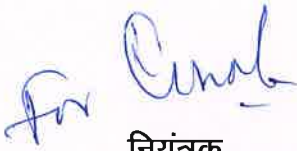 For
नियंत्रक